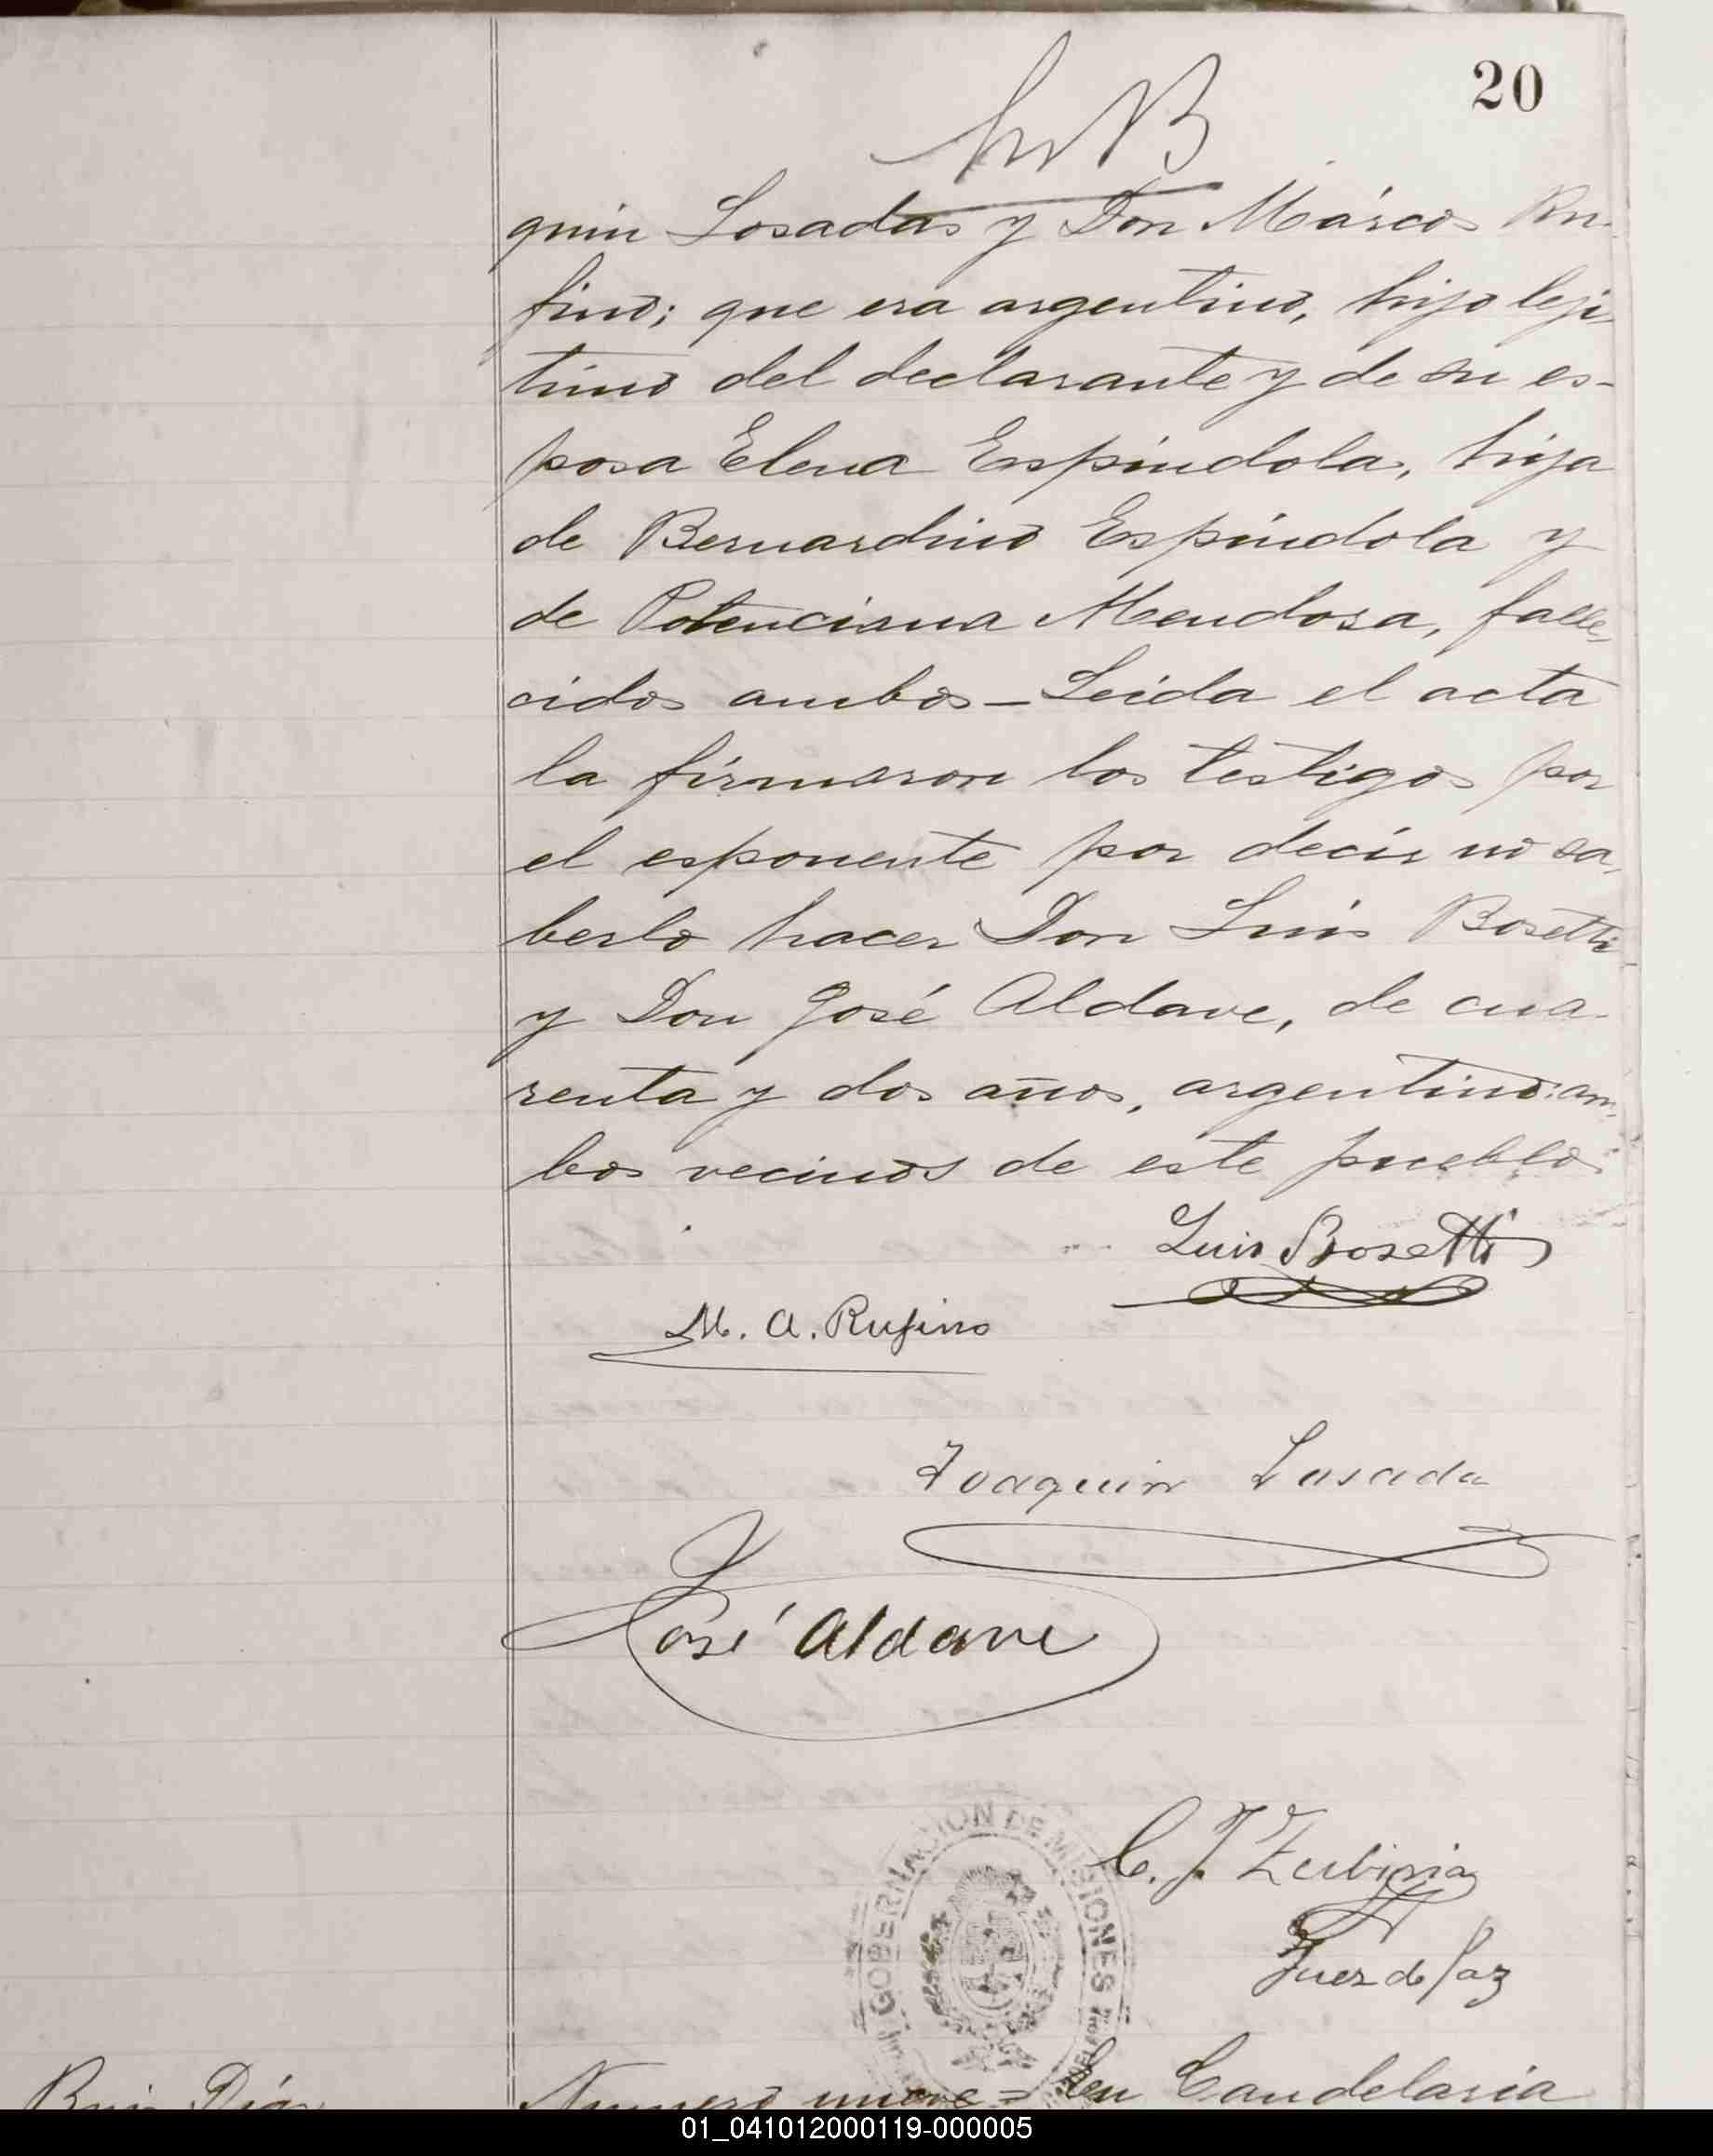 20
quin Losadas y Don Márcos Ru-
fino; que era argentino, hijo leji-
timo del declarante y de su es-
posa Elena Espíndola, hija
de Bernardino Espíndola y
de Potenciana Mendosa, falle-
cidos ambos - Leida el acta
la firmaron los testigos por
el esponente por decir no sa-
berlo hacer Don Luis Bosetti
y Don José Aldave, de cua-
renta y dos años, argentino: am-
bos vecinos de este pueblo.
Luis Bosetti
M. A. Rufino
Joaquin Losada
José Aldave
GOBERNACION DE MISIONES
C. J. Zubiria
Juez de Paz
Ruiz Díaz
Numero nueve = En Candelaria
01_041012000119-000005